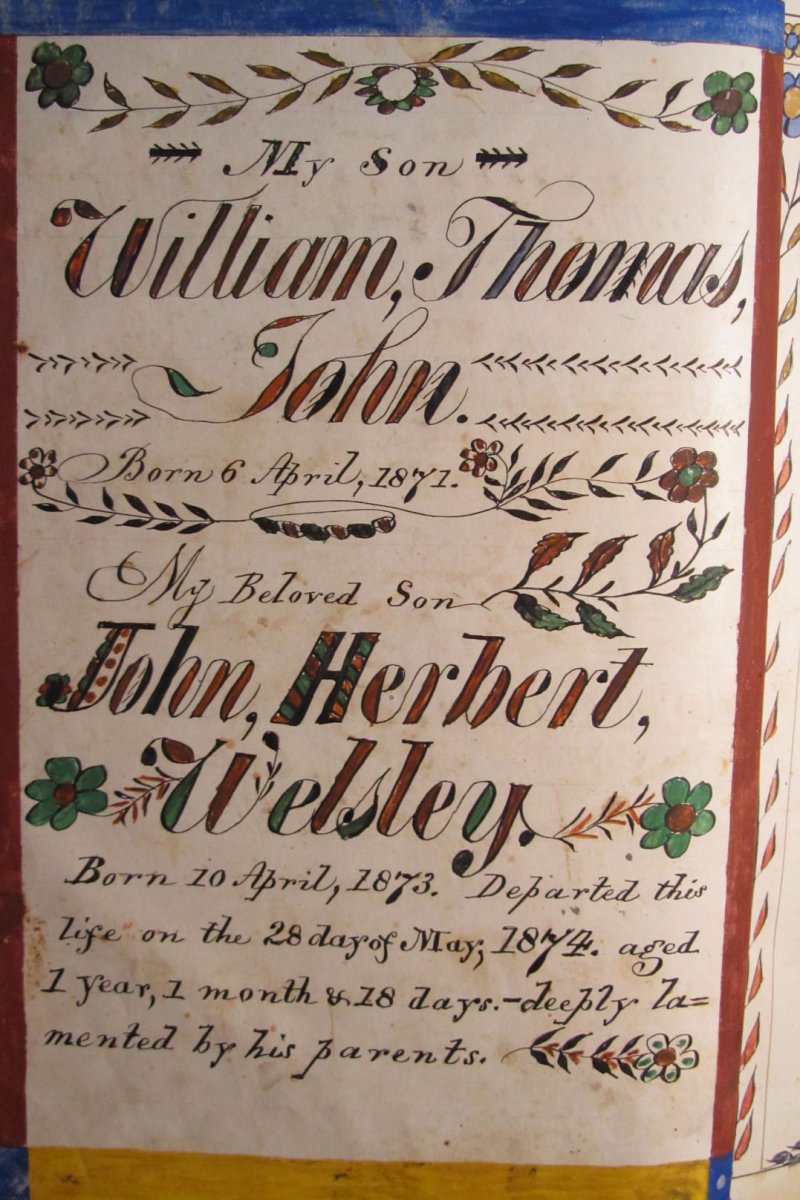 My Son
William, Thomas,
John.
Born 6 April, 1871.
My Beloved Son
John, Herbert,
Welsley.
Born 10 April, 1873. Departed this
life on the 28 day of May, 1874. aged
1 year, 1 month & 18 days.-deeply la=
mented by his parents.